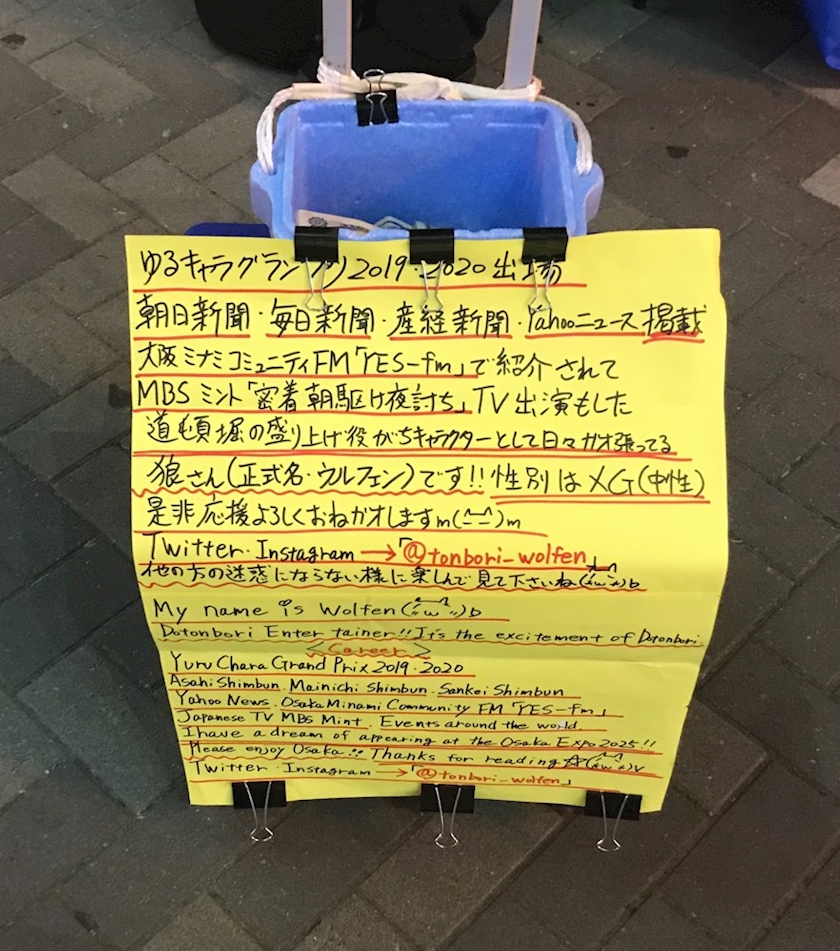 ゆるキャラグランプリ2019・2020出場
朝日新聞・毎日新聞・産経新聞・Yahooニュース掲載
大阪ミナミコミュニティFM「YES-fm」で紹介されて
MBSミント「密着朝駆け夜討ち」TV出演もした
道頓堀の盛り上げ役がちキャラクターとして日々がオ張ってる
狼さん(正式名・ウルフェン)です!!性別はXG(中性)
是非応援よろしくおねがオしますm(_ _)m
Twitter・Instagram→「@tonbori_wolfen」
他の方の迷惑にならない様に楽しんで見て下さいね(^ω^)b
My name is Wolfen(^ω^)b
Dotonbori Enter tainer!!It's the excitement of Dotonbori.
<Career>
Yuru Chara Grand Prix 2019・2020
Asahi Shimbun. Mainichi Shimbun. Sankei Shimbun
Yahoo News. Osaka Minami Community FM「YES-fm」
Japanese TV MBS Mint. Events around the world.
I have a dream of appearing at the Osaka Expo 2025!!
Please enjoy Osaka!! Thanks for reading☆(^ω^)v
Twitter・Instagram→「@tonbori_wolfen」